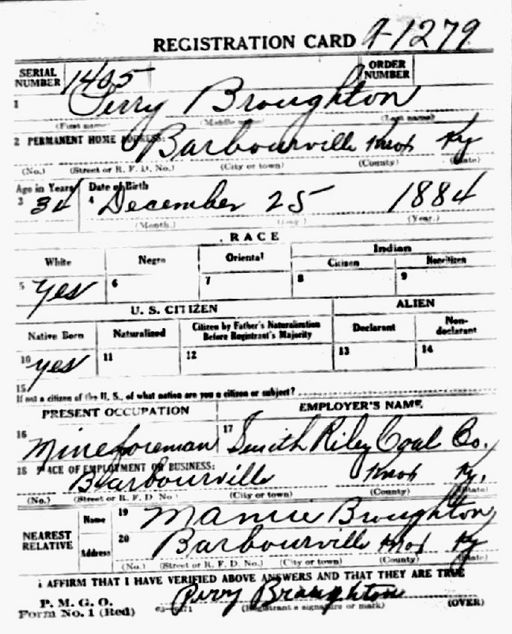 REGISTRATION CARD A-1279
SERIAL NUMBER 1405 ORDER NUMBER
1 Perry Broughton
(First name) (Middle name) (Last name)
2 PERMANENT HOME ADDRESS: Barbourville Knox Ky
(No.) (Street or R. F. D. No.) (City or town) (County) (State)
Age in Years Date of Birth
3 34 4 December 25 1884
(Month.) (Day.) (Year.)
RACE
White Negro Oriental Indian
Citizen Noncitizen
5 Yes 6 7 8 9
U. S. CITIZEN ALIEN
Native Born Naturalized Citizen by Father's Naturalization Before Registrant's Majority Declarant Non-declarant
10 yes 11 12 13 14
15
If not a citizen of the U. S., of what nation are you a citizen or subject?
PRESENT OCCUPATION EMPLOYER'S NAME
16 Mine foreman 17 Smith Riley Coal Co.
18 PLACE OF EMPLOYMENT OR BUSINESS:
Barbourville Knox Ky.
(No.) (Street or R. F. D. No.) (City or town) (County) (State)
NEAREST RELATIVE Name 19 Mamie Broughton
Address 20 Barbourville Knox Ky
(No.) (Street or R. F. D. No.) (City or town) (County) (State)
I AFFIRM THAT I HAVE VERIFIED ABOVE ANSWERS AND THAT THEY ARE TRUE
P. M. G. O.
Form No. 1 (Red) Perry Broughton
(Registrant's signature or mark) (OVER)